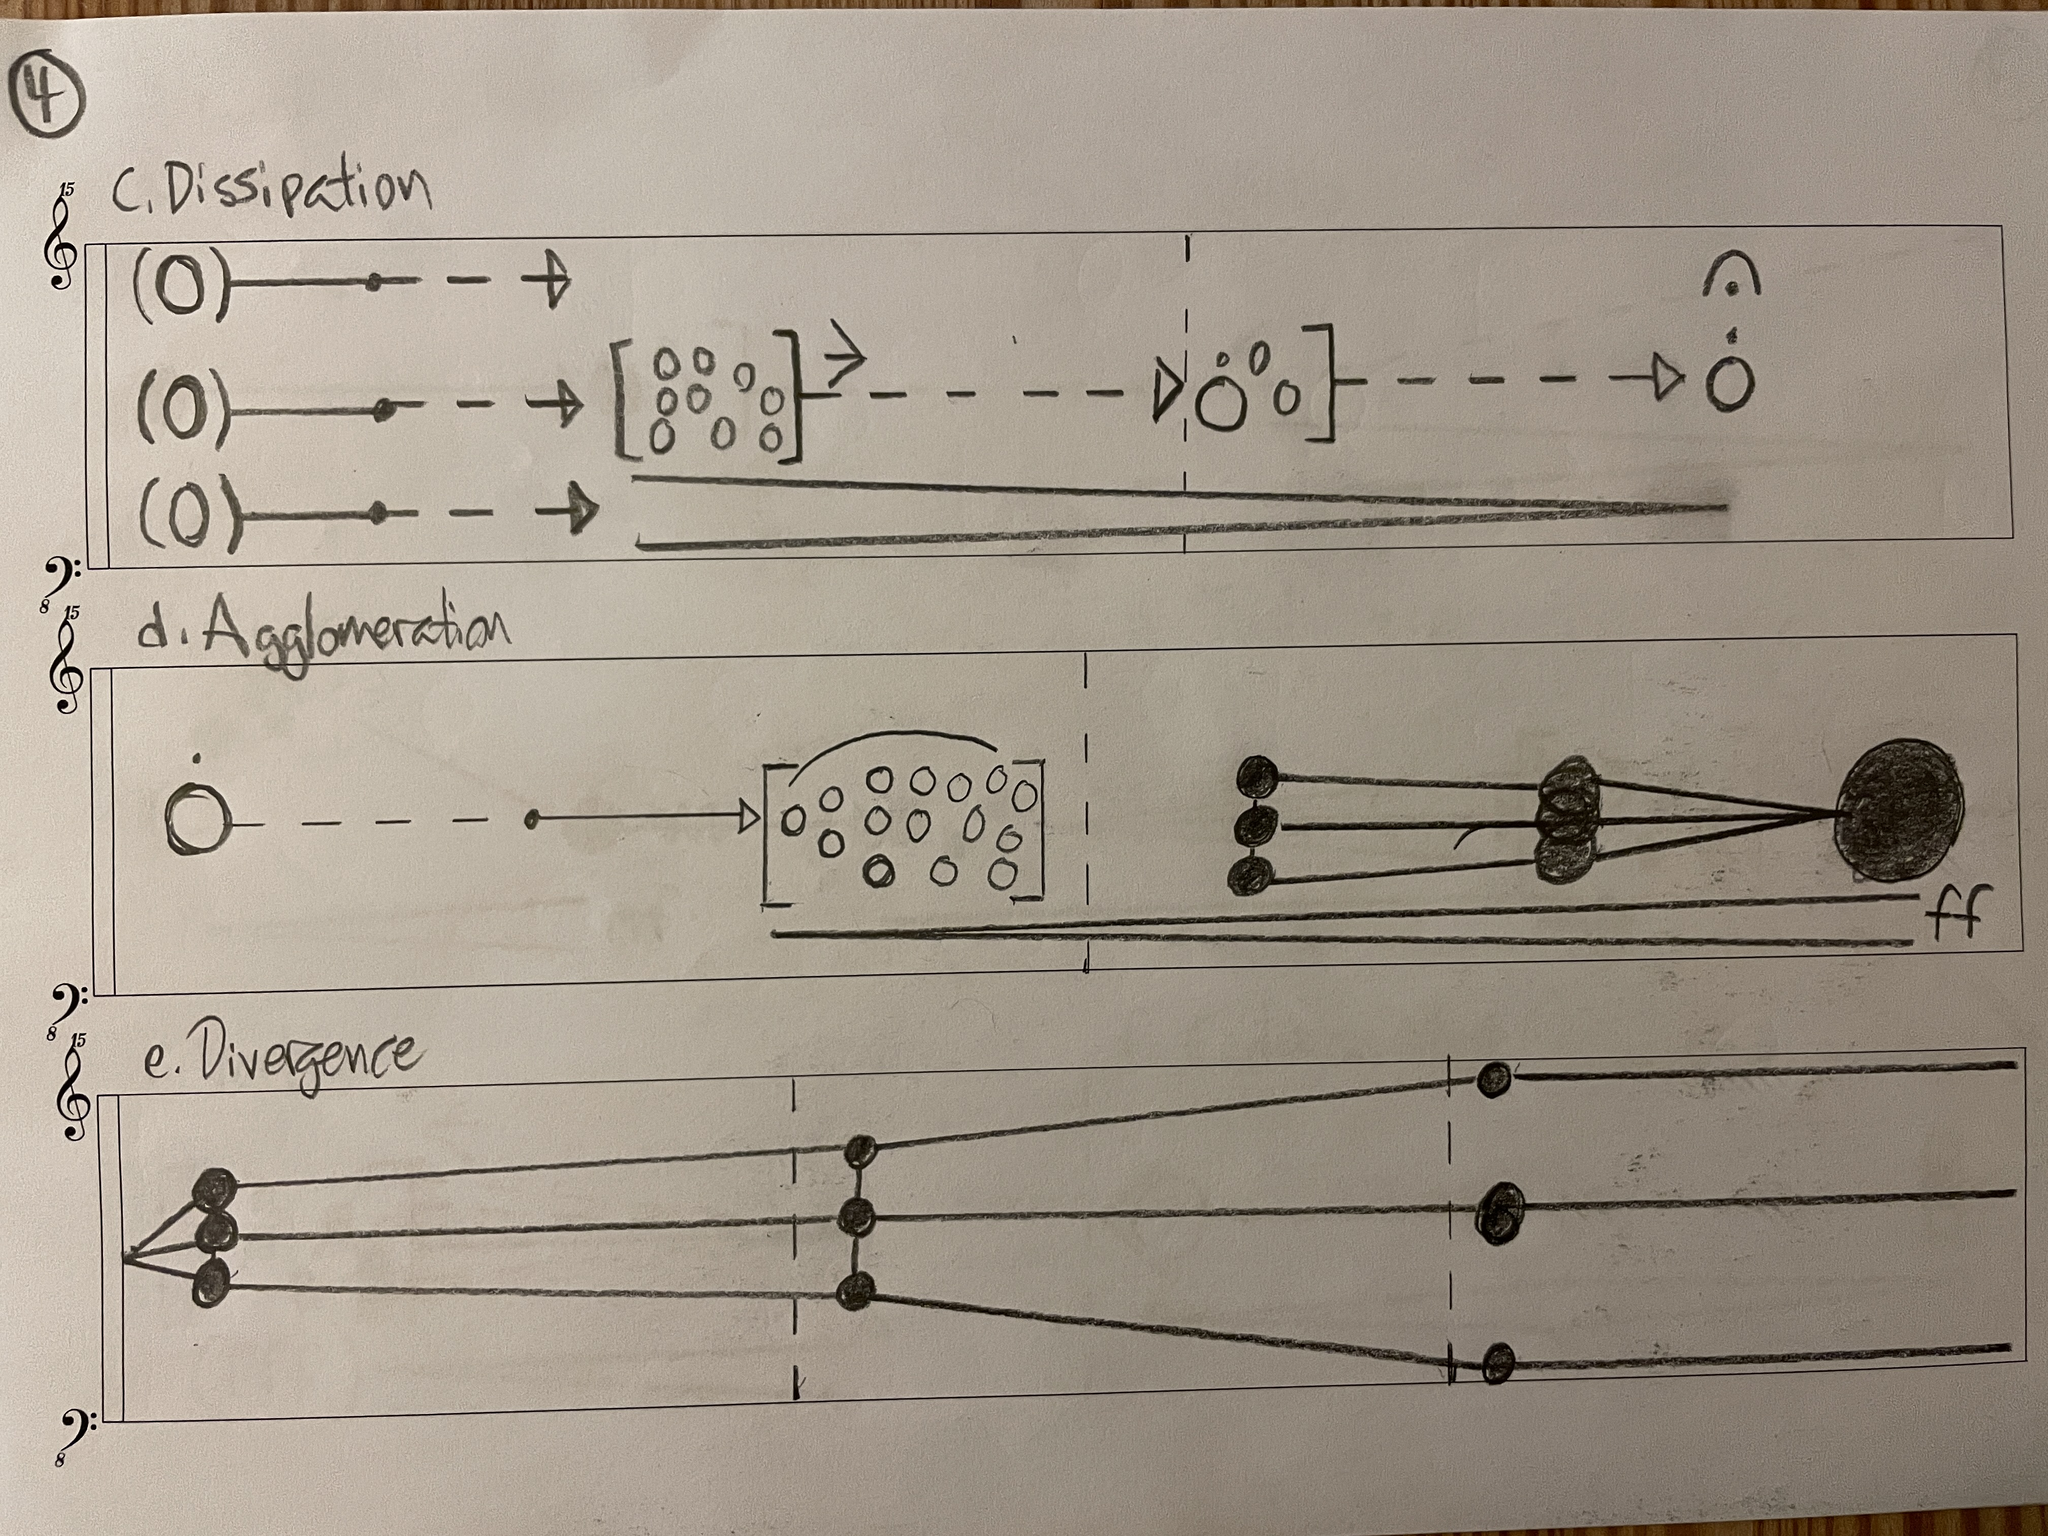 4
c. Dissipation
15
8
d. Agglomeration
15
ff
8
e. Divergence
15
8